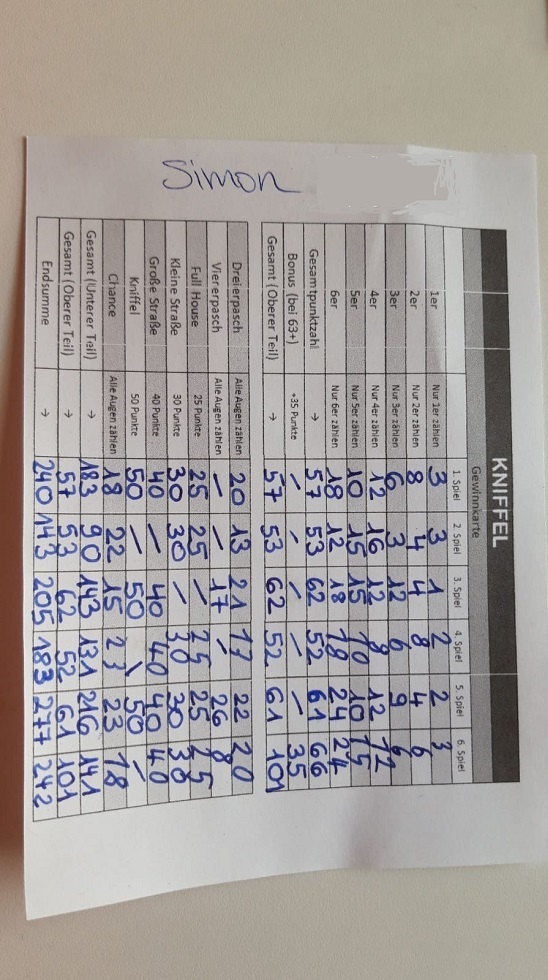 Simon
KNIFFEL
Gewinnkarte
1. Spiel 2. Spiel 3. Spiel 4. Spiel 5. Spiel 6. Spiel
1er Nur 1er zählen 3 3 1 2 2 3
2er Nur 2er zählen 8 4 4 8 4 6
3er Nur 3er zählen 6 3 12 6 9 6
4er Nur 4er zählen 12 16 12 8 12 12
5er Nur 5er zählen 10 15 15 10 10 15
6er Nur 6er zählen 18 12 18 18 24 24
Gesamtpunktzahl → 57 53 62 52 61 66
Bonus (bei 63+) +35 Punkte / / / / / 35
Gesamt (Oberer Teil) → 57 53 62 52 61 101
Dreierpasch Alle Augen zählen 20 13 21 13 22 20
Viererpasch Alle Augen zählen / / 17 / 26 8
Full House 25 Punkte 25 25 / 25 25 25
Kleine Straße 30 Punkte 30 30 / 30 30 30
Große Straße 40 Punkte 40 / 40 40 40 40
Kniffel 50 Punkte 50 / 50 \ 50 /
Chance Alle Augen zählen 18 22 15 23 23 18
Gesamt (Unterer Teil) → 183 90 143 131 216 141
Gesamt (Oberer Teil) → 57 53 62 52 61 101
Endsumme → 240 143 205 183 277 242